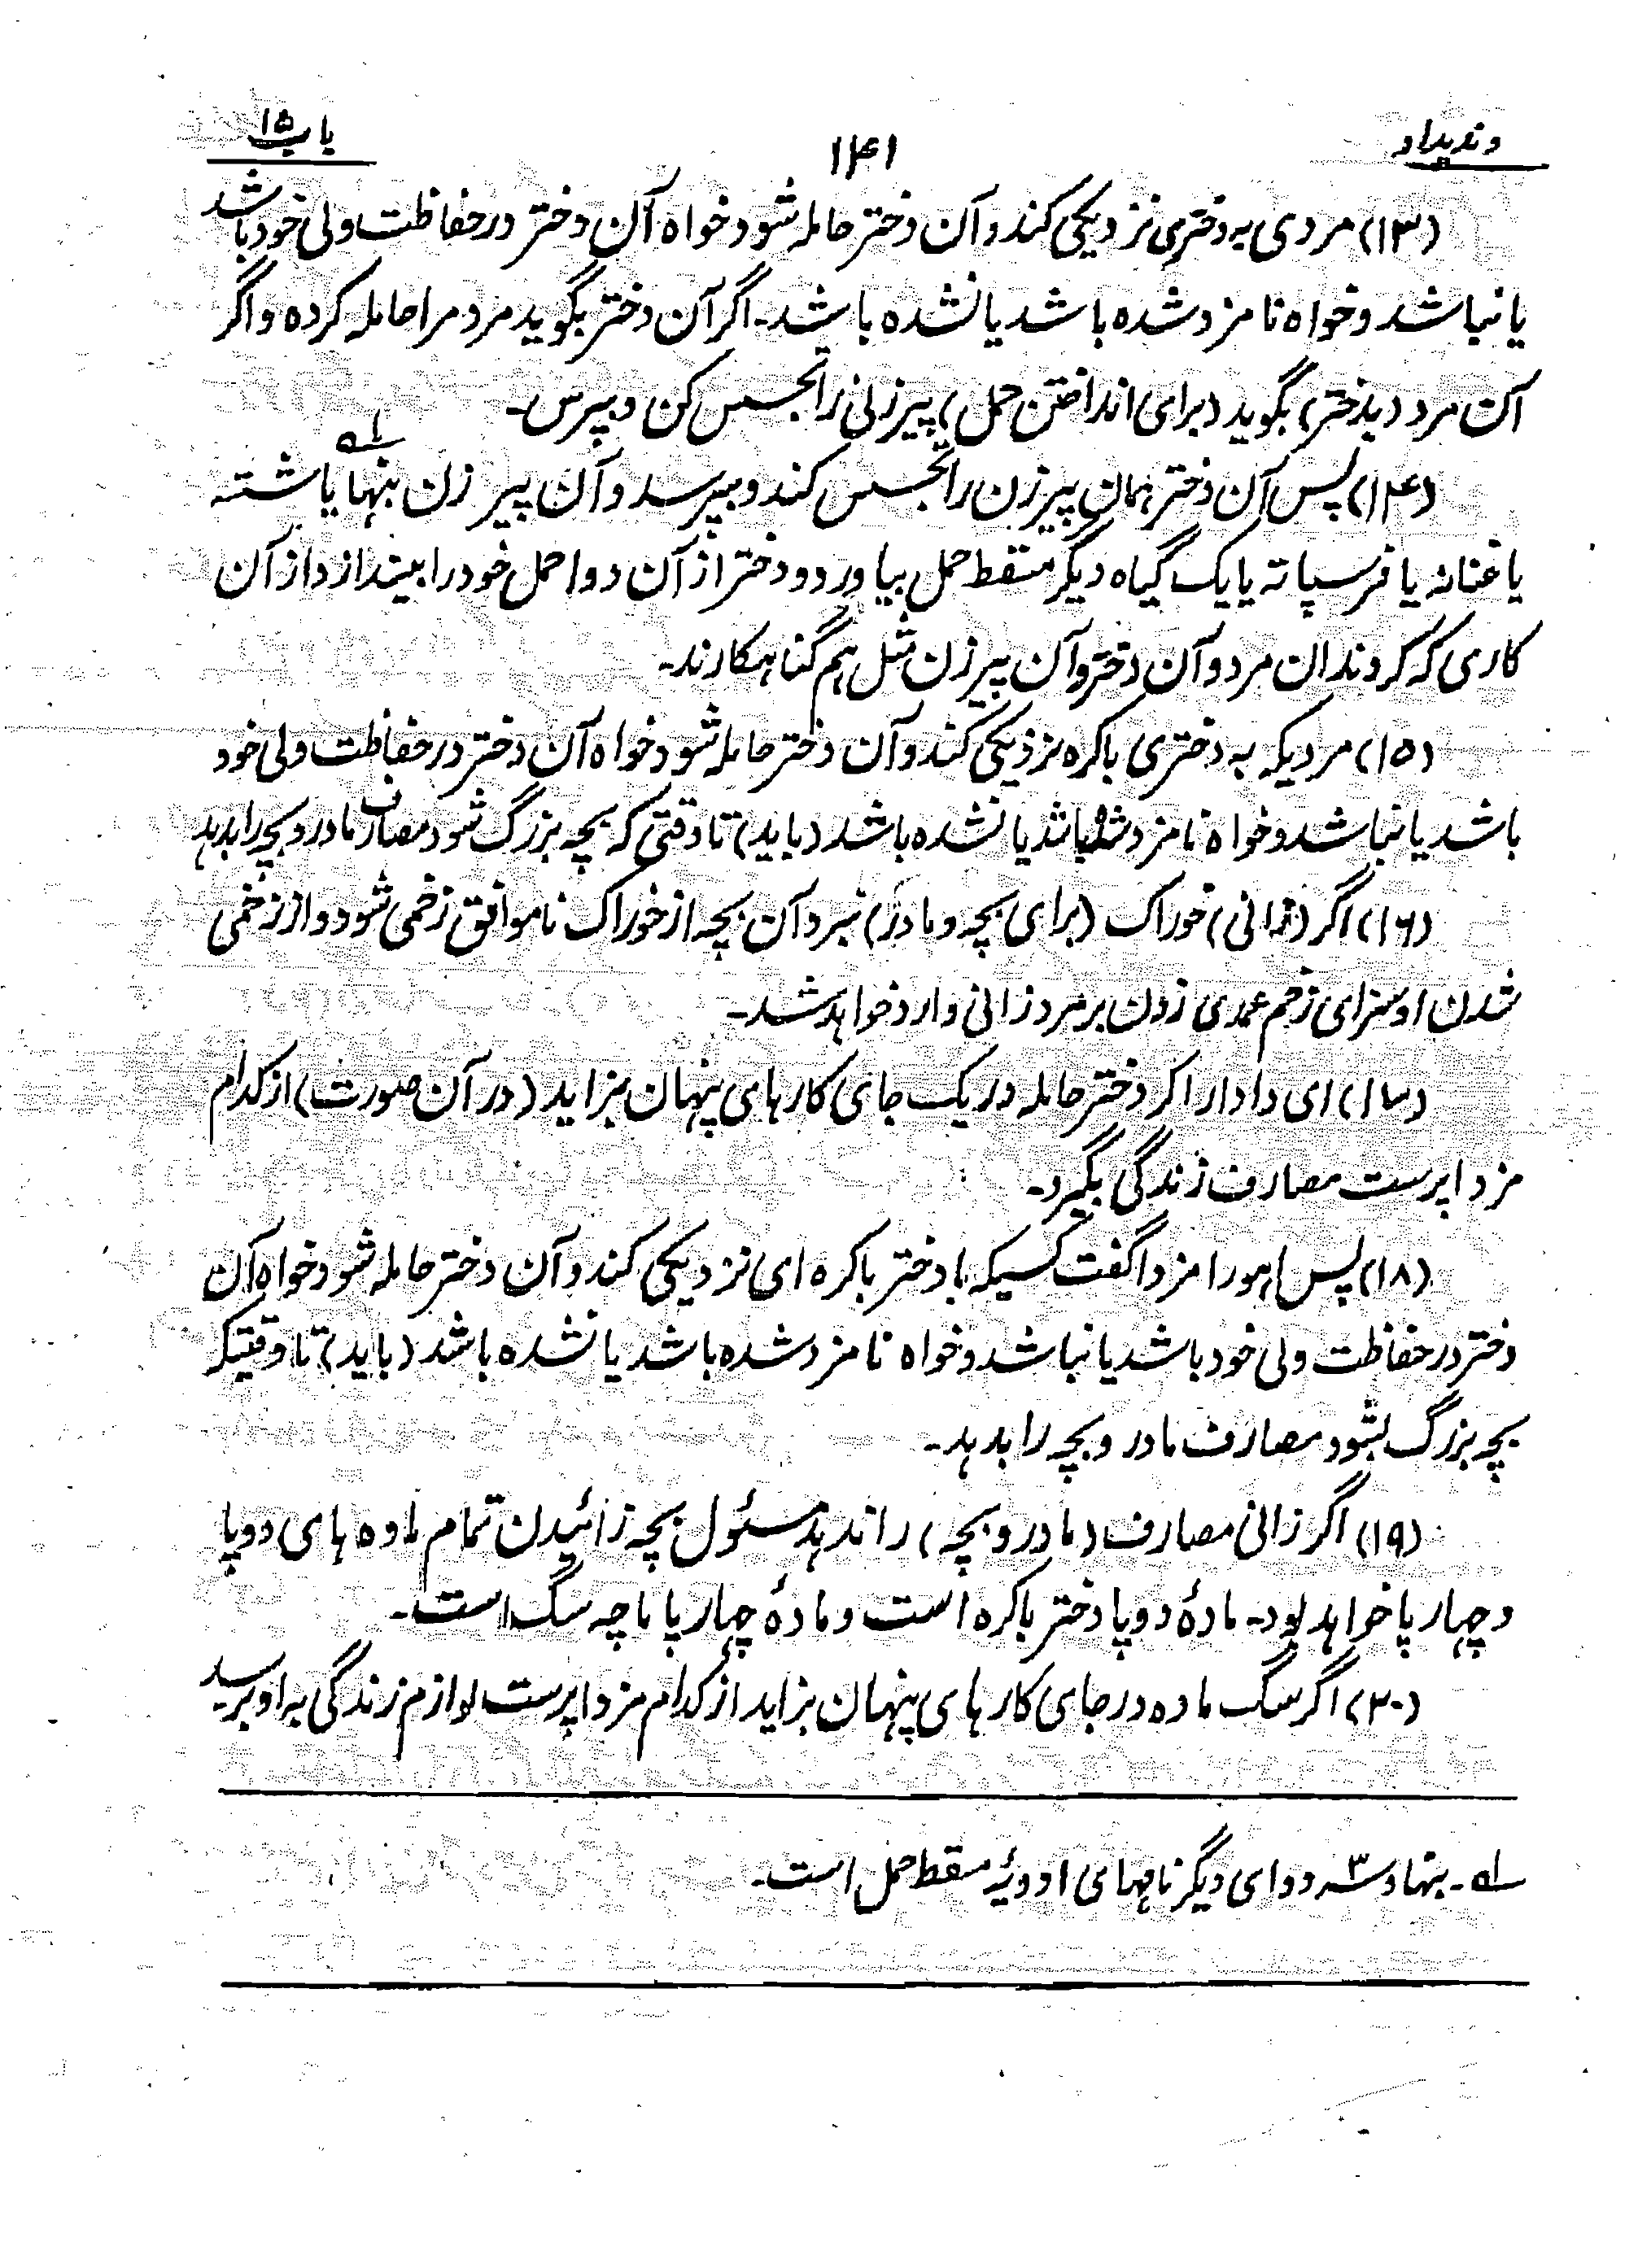 وندیداد
۱۴۱
باب ۱۵
(۱۳) مردی به دختری نزدیکی کند و آن دختر حامله شود خواه آن دختر در حفاظت ولی خود باشد
یا نباشد و خواه نامزد شده باشد یا نشده باشد ـ اگر آن دختر بگوید مرد مرا حامله کرده و اگر
آن مرد (بدختر) بگوید (برای انداختن حمل) پیرزنی را تجسس کن و بپرس ـ
(۱۴) پس آن دختر همان پیرزن را تجسس کند و بپرسد و آن پیر زن بنهاله یا شته
یا غنانه یا فرسپاته یا یک گیاه دیگر مسقط حمل بیاورد و دختر از آن دوا حمل خود را بیندازد از آن
کاری که کردند ان مرد و آن دختر و آن پیرزن مثل هم گناهکارند ـ
(۱۵) مردیکه به دختری باکره نزدیکی کند و آن دختر حامله شود خواه آن دختر در حفاظت ولی خود
باشد یا نباشد و خواه نامزد شده باشد یا نشده باشد (باید) تا وقتی که بچه بزرگ شود مصارف مادر و بچه را بدهد
(۱۶) اگر (زانی) خوراک (برای بچه و مادر) نبرد آن بچه از خوراک ناموافق زخمی شود و از زخمی
شدن او سزای زخم عمدی زدن بر مرد زانی وارد خواهد شد ـ
(۱۷) ای دادار اگر دختر حامله در یک جای کارهای پنهان بزاید (در آن صورت) از کدام
مزدا پرست مصارف زندگی بگیرد ـ
(۱۸) پس اهورا مزدا گفت کسیکه با دختر باکره ای نزدیکی کند و آن دختر حامله شود خواه آن
دختر در حفاظت ولی خود باشد یا نباشد و خواه نامزد شده باشد یا نشده باشد (باید) تا وقتیکه
بچه بزرگ بشود مصارف مادر و بچه را بدهد ـ
(۱۹) اگر زانی مصارف (مادر و بچه) را ندهد مسئول بچه زائیدن تمام ماده های دوپا
و چهار پا خواهد بود ـ مادهٔ دوپا دختر باکره است و مادهٔ چهار پا ماچه سگ است ـ
(۲۰) اگر سگ ماده در جای کارهای پنهان بزاید از کدام مزدا پرست لوازم زندگی به او برسد
له ـ بنها و سه دوای دیگر نامهای ادویهٔ مسقط حمل است ـ